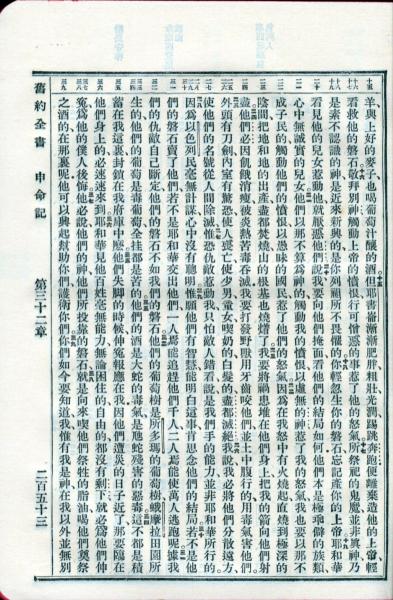 羊與上好的麥子也喝葡萄汁釀的酒但耶書崙漸漸肥胖粗壯光潤踢跳奔跑便離棄造他的上帝輕
看救他的磐石敬拜別神觸動上帝的憤恨行可憎惡的事惹了他的怒氣所祭祀的鬼魔並非眞神乃
是素不認識的神是近來新興的是你列祖所不畏懼的你輕忽生你的磐石忘記產你的上帝耶和華
看見他的兒女惹動他就厭惡他們說我要向他們掩面看他們的結局如何他們本是極乖僻的族類
心中無誠實的兒女他們以那不算爲神的觸動我的憤恨以虛無的神惹了我的怒氣我也要以那不
成子民的觸動他們的憤恨以愚昧的國民惹了他們的怒氣因爲在我怒中有火燒起直燒到極深的
陰間把地和地的出產盡都焚燒山的根基也燒着了我要將禍患堆在他們身上把我的箭向他們射
盡他們必因飢餓消瘦被炎熱苦毒吞滅我要打發野獸用牙齒咬他們並土中腹行的用毒氣害他們
外頭有刀劍內室有驚恐使人喪亡使少男童女喫奶的白髮的盡都滅絕我說我必將他們分散遠方
使他們的名號從人間除滅惟恐仇敵惹動我只怕敵人錯看說是我們手的能力並非耶和華所行的
因爲以色列民毫無計謀心中沒有聰明惟願他們有智慧能明白這事肯思念他們的結局若不是他
們的磐石賣了他們若不是耶和華交出他們一人焉能追趕他們千人二人焉能使萬人逃跑呢據我
們的仇敵自己斷定他們的磐石不如我們的磐石他們的葡萄樹是所多瑪的葡萄樹蛾摩拉田園所
生的他們的葡萄是毒葡萄全挂都是苦的他們的酒是大蛇的毒氣是虺蛇殘害的惡毒這不都是積
蓄在我這裏封鎖在我府庫中麼他們失脚的時候伸冤報應在我因他們遭災的日子近了那要臨在
他們身上的必速速來到耶和華見他百姓毫無能力無論困住的自由的都沒有剩下就必爲他們伸
冤爲他的僕人後悔他必說他們的神他們所投靠的磐石就是向來喫他們祭牲的脂油喝他們奠祭
之酒的在那裏呢他可以興起幫助你們護衞你們你們如今要知道我惟有我是神在我以外並無別
舊約全書 申命記 第三十二章 二百五十三